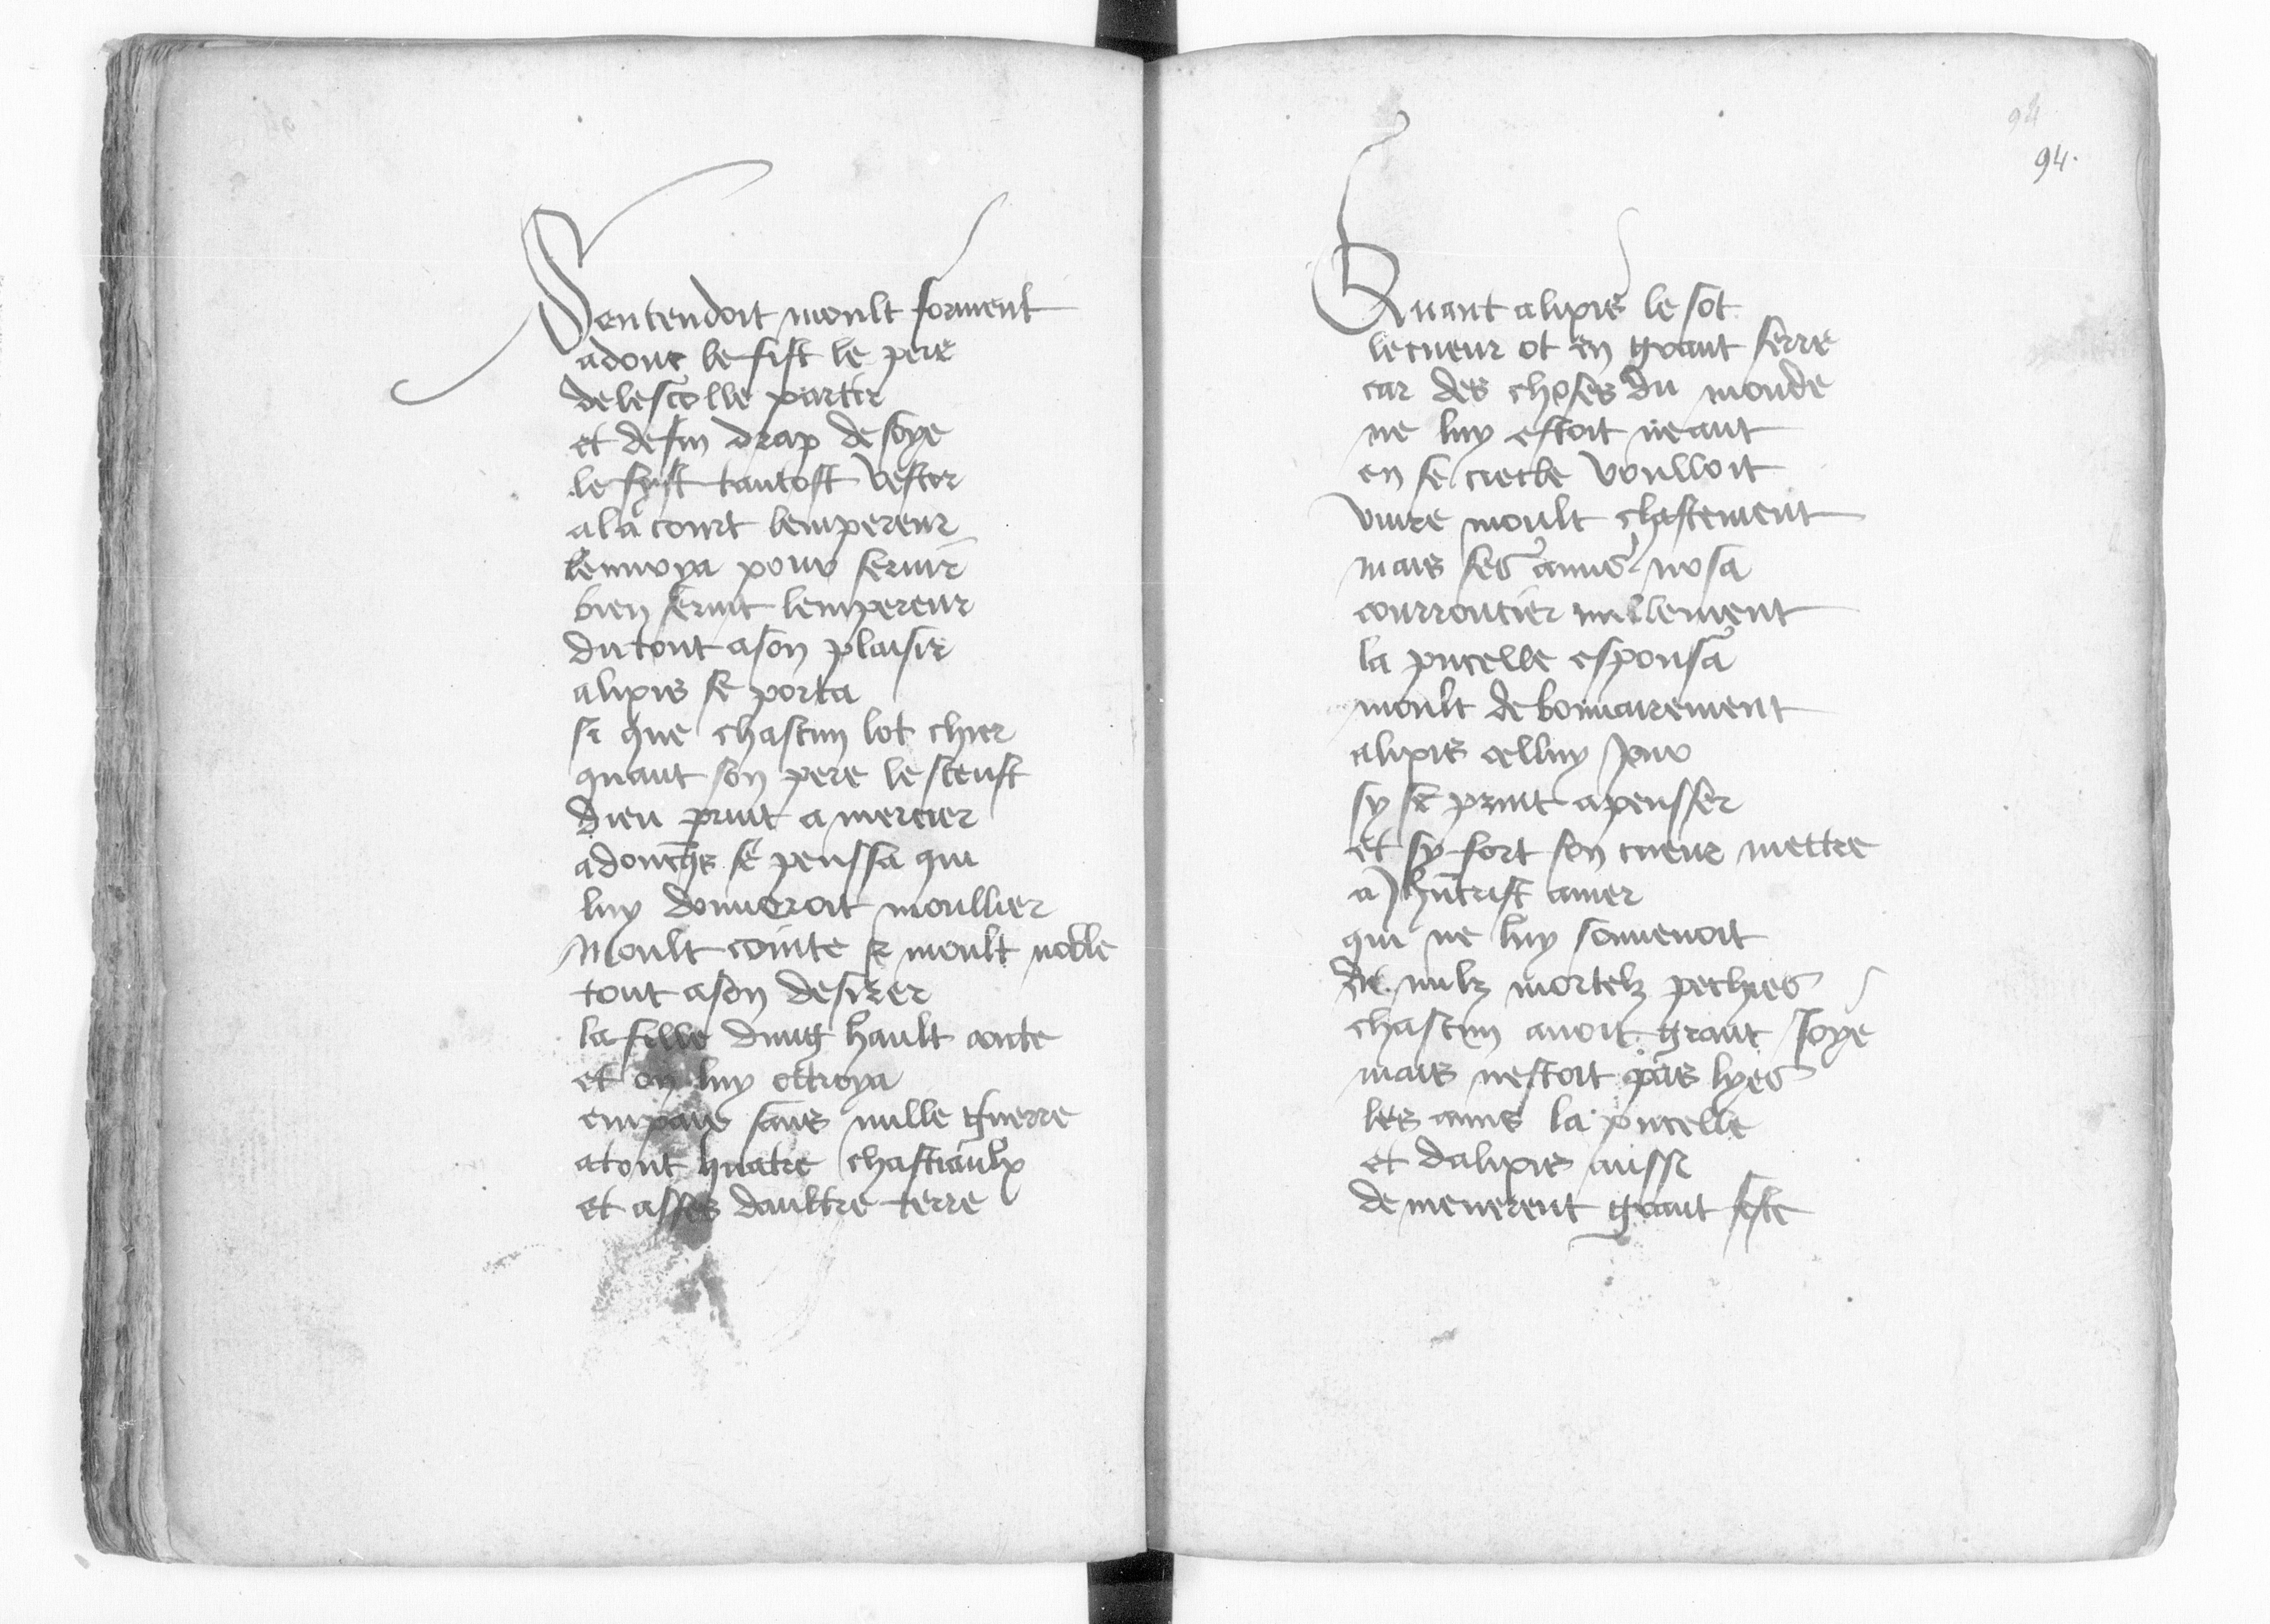 Sentendoit moult forment
adonc le fist le pere
de lescolle partir
et de fin drap de soye
le fyst tantost vestir
a la court lempereur
lenvoya pour servir
bien servit lempereur
du tout a son plaisir
alipis se porta
si que chascun lot chier
quant son pere le sceust
dieu print a mercier
adoncqs se penssa qui
luy donneroit moullier
Moult cointe & moult noble
tout a son desirer
la fille dung hault conte
et on luy ottroya
empais sans nulle guerre
atout quatre chastiaulx
et asses daultre terre
94
94.
Quant alipis le sot
le cueur ot en grant serre
car des choses du monde
ne luy estoit neant
en se ciecle voulloit
vivre moult chastement
mais ses amis nosa
courroucier nullement
la pucelle espousa
moult debonnairement
alipis celluy jour
sy se print a pensser
et sy fort son cueur mettre
a Jhucrist amer
qui ne luy souvenoit
de nulz mortelz pechies
chascun avoit grant Joye
mais nestoit pas lyes
les amis la pucelle
et dalipis aussi
demenerent grant feste